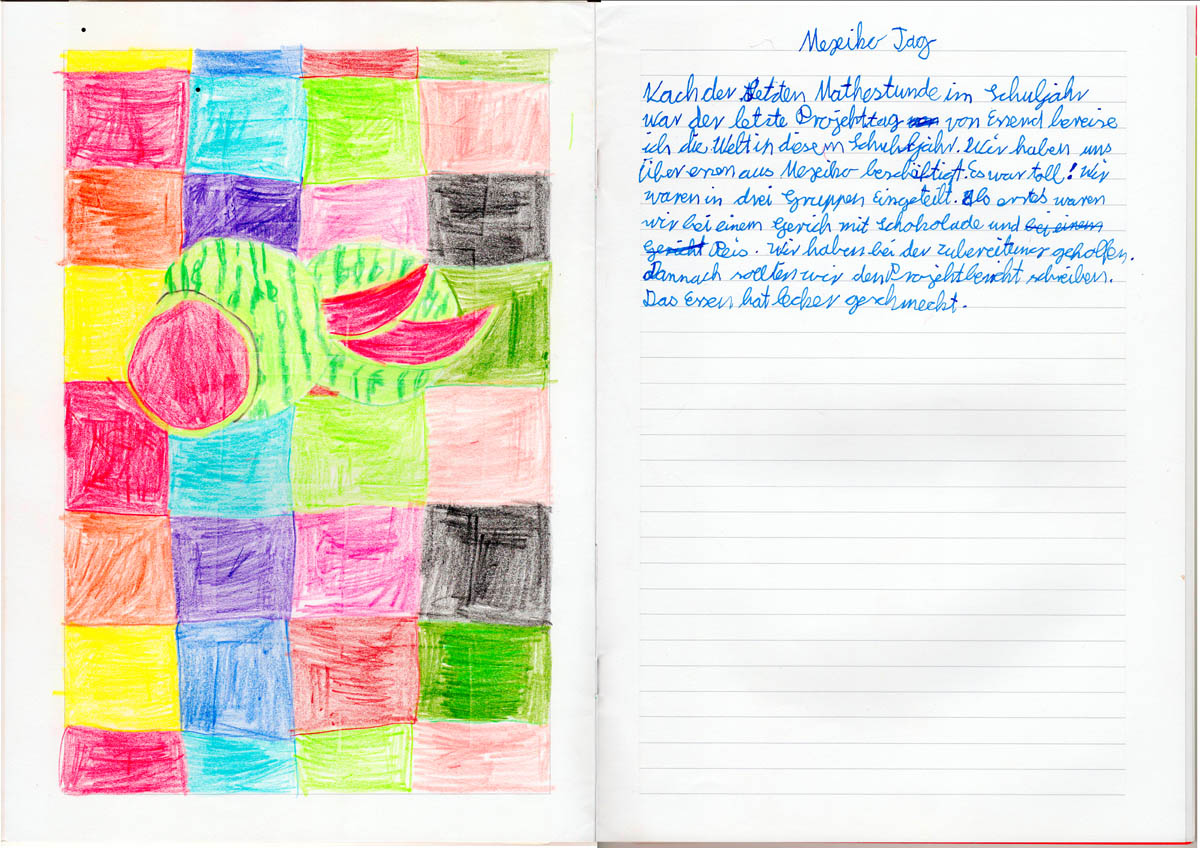 Mexiko Tag
Nach der letzten Mathestunde im Schuljahr
war der letzte Projekttag von Essend bereise
ich die Welt in diesem Schuhljahr. Wir haben uns
Über essen aus Mexiko beschäftigt. Es war toll! Wir
waren in drei Gruppen Eingeteilt. Als erstes waren
wir bei einem Gerich mit Schokolade und bei einem
Gericht Reis. Wir haben bei der zubereitung geholfen.
Dannach sollten wir den Projektbericht schreiben.
Das Essen hat lecker geschmeckt.